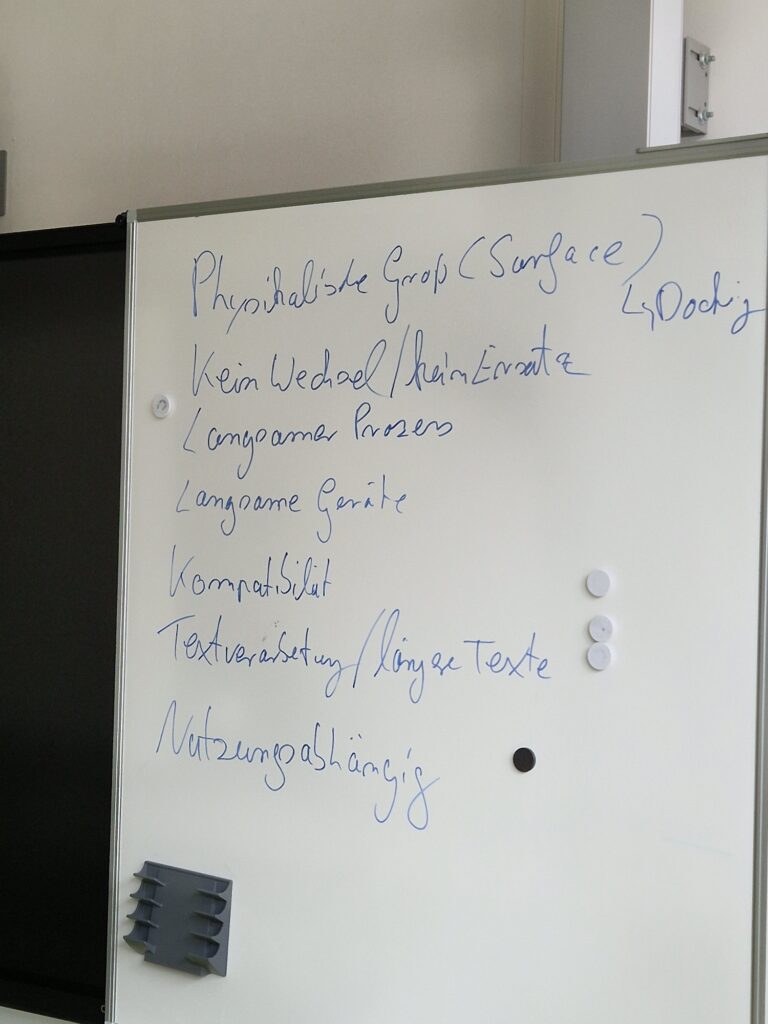 Physikalische Groß (Surface)
↳ Docking
Kein Wechsel/kein Ersatz
Langsamer Prozess
Langsame Geräte
Kompatibilität
Textverarbeitung/längere Texte
Nutzungsabhängig